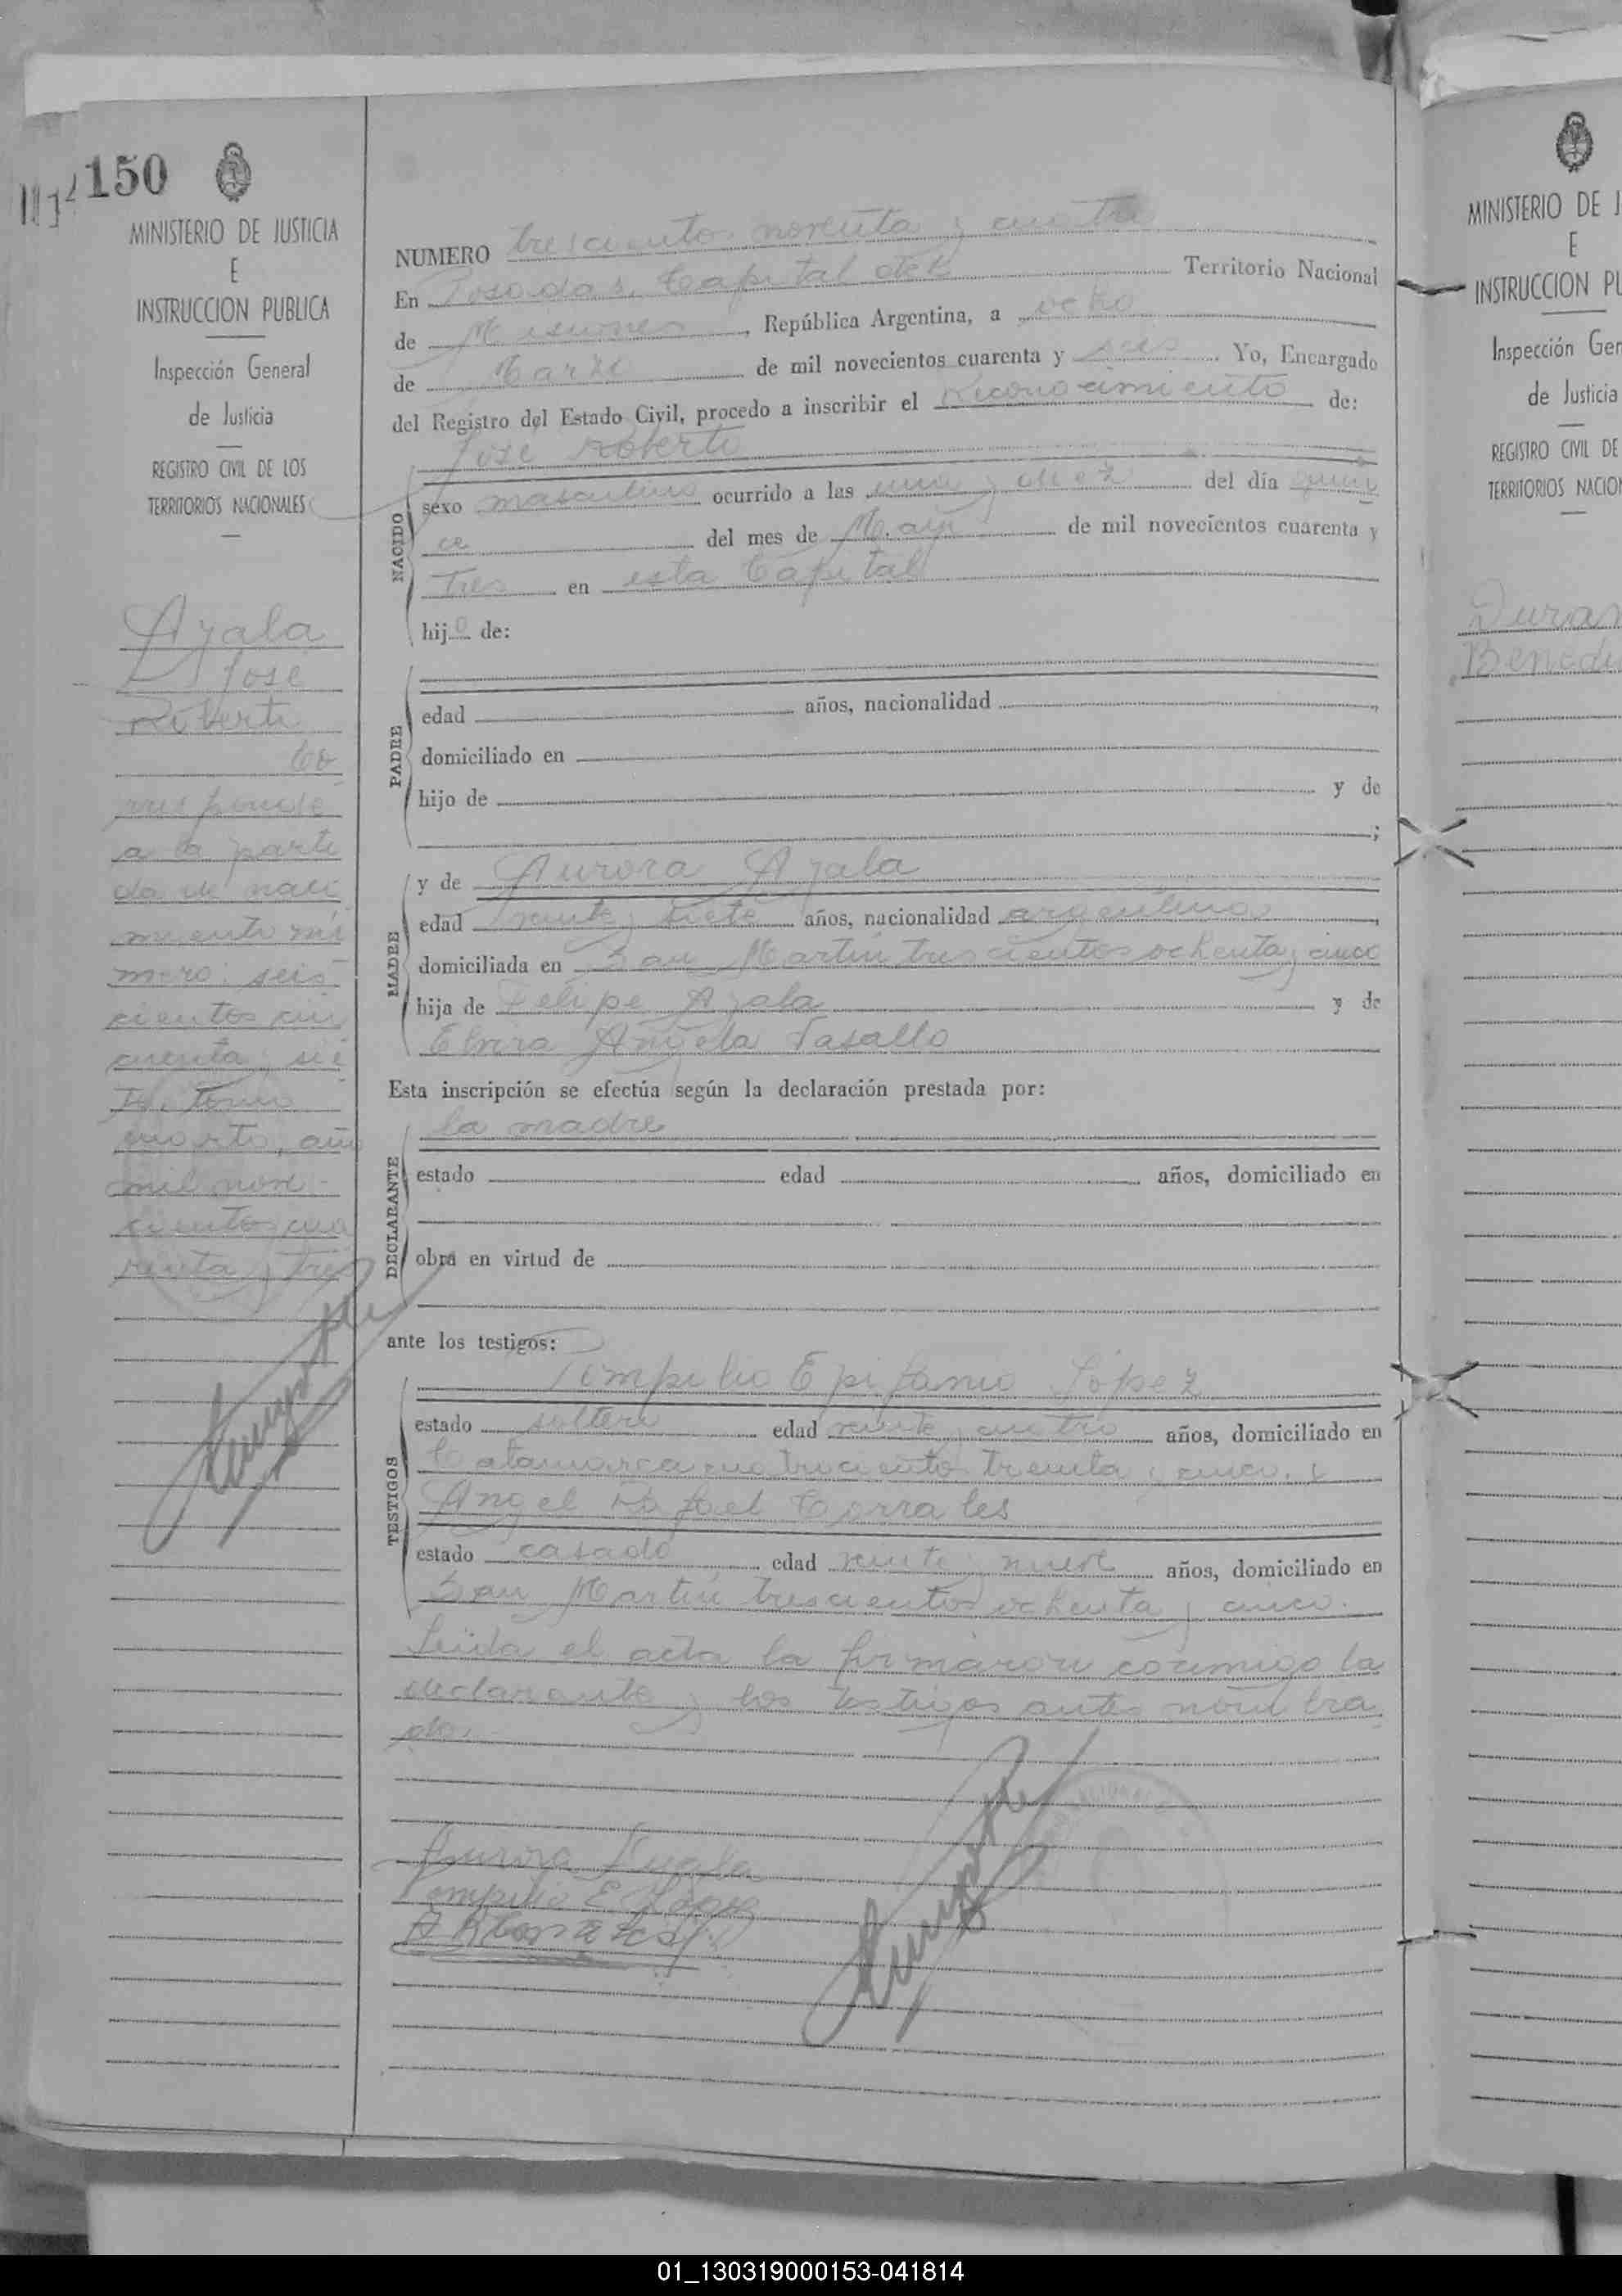 150
MINISTERIO DE JUSTICIA
E
INSTRUCCION PUBLICA
Inspección General
de Justicia
REGISTRO CIVIL DE LOS
TERRITORIOS NACIONALES
Ayala
José
Roberto
Co
rresponde
a la parti
da de naci
miento nú
mero: seis
cientos cin
cuenta y sie
te, tomo
cuarto, año
mil nove
cientos cua
renta y tres
NUMERO trescientos noventa y cuatro
En Posadas, Capital del Territorio Nacional
de Misiones, República Argentina, a ocho
de Marzo de mil novecientos cuarenta y seis. Yo, Encargado
del Registro del Estado Civil, procedo a inscribir el Reconocimiento de:
José Roberto
NACIDO
sexo masculino ocurrido a las una y diez del día quin
ce del mes de Mayo de mil novecientos cuarenta y
tres en esta Capital
hijo de:
PADRE
edad años, nacionalidad ,
domiciliado en
hijo de y de
;
MADRE
y de Aurora Ayala
edad veinte y siete años, nacionalidad argentina,
domiciliada en San Martín trescientos ochenta y cinco
hija de Felipe Ayala y de
Elvira Angela Tasallo
Esta inscripción se efectúa según la declaración prestada por:
DECLARANTE
la madre
estado edad años, domiciliado en
obra en virtud de
ante los testigos:
TESTIGOS
Pompilio Epifanio López
estado soltero edad veinte y cuatro años, domiciliado en
Catamarca cuatrociento treinta y cinco. y
Angel Rafael Corrales
estado casado edad veinte y nueve años, domiciliado en
San Martín trescientos ochenta y cinco.
Leída el acta la firmaron conmigo la
declarante y los testigos antes nombra
dos.
Aurora Ayala
Pompilio E. López
A R Corrales
MINISTERIO DE J
E
INSTRUCCION PU
Inspección Gen
de Justicia
REGISTRO CIVIL DE
TERRITORIOS NACION
Duran
Benedi
01_130319000153-041814